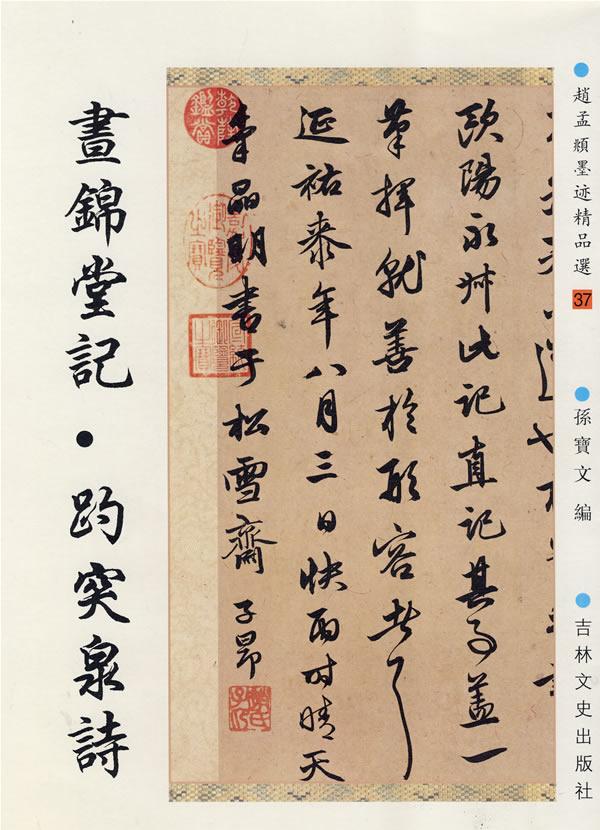 趙孟頫墨迹精品選 37
孫寶文 編
吉林文史出版社
歐陽永叔此記直記其事蓋一
筆揮就善於形容者也
延祐柒年八月三日快雨时晴天
氣晶明書于松雪齋 子昂
乾隆鑑賞
趙氏子昂
晝錦堂記・趵突泉詩